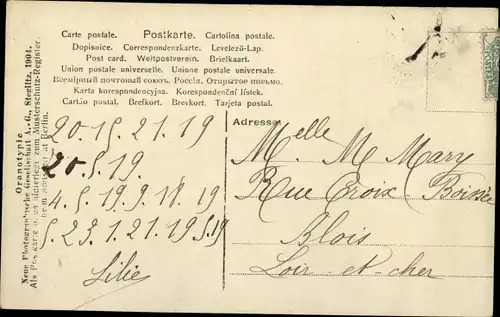 Carte postale. Postkarte. Cartolina postale.
Dopisnice. Correspondenzkarte. Levelező-Lap.
Post card. Weltpostverein. Briefkaart.
Union postale universelle. Unione postale universale.
Всемірный почтовый союзъ. Россія. Открытое письмо.
Karta korespondencyjna. Korespondenční lístek.
Cartão postal. Brefkort. Brevkort. Tarjeta postal.
20.15.21.19
20.5.19
4.5.19.9.18.19
5.23.1.21.19.5.19
Lilie
Adresse:
Melle. M. Mary
Rue Croix Boissée
Blois
Loir-et-cher
Oranotypie
Neue Photographische Gesellschaft A.-G., Steglitz, 1904.
Als Postkarte hinterlegt zum Musterschutz-Register
Berlin.